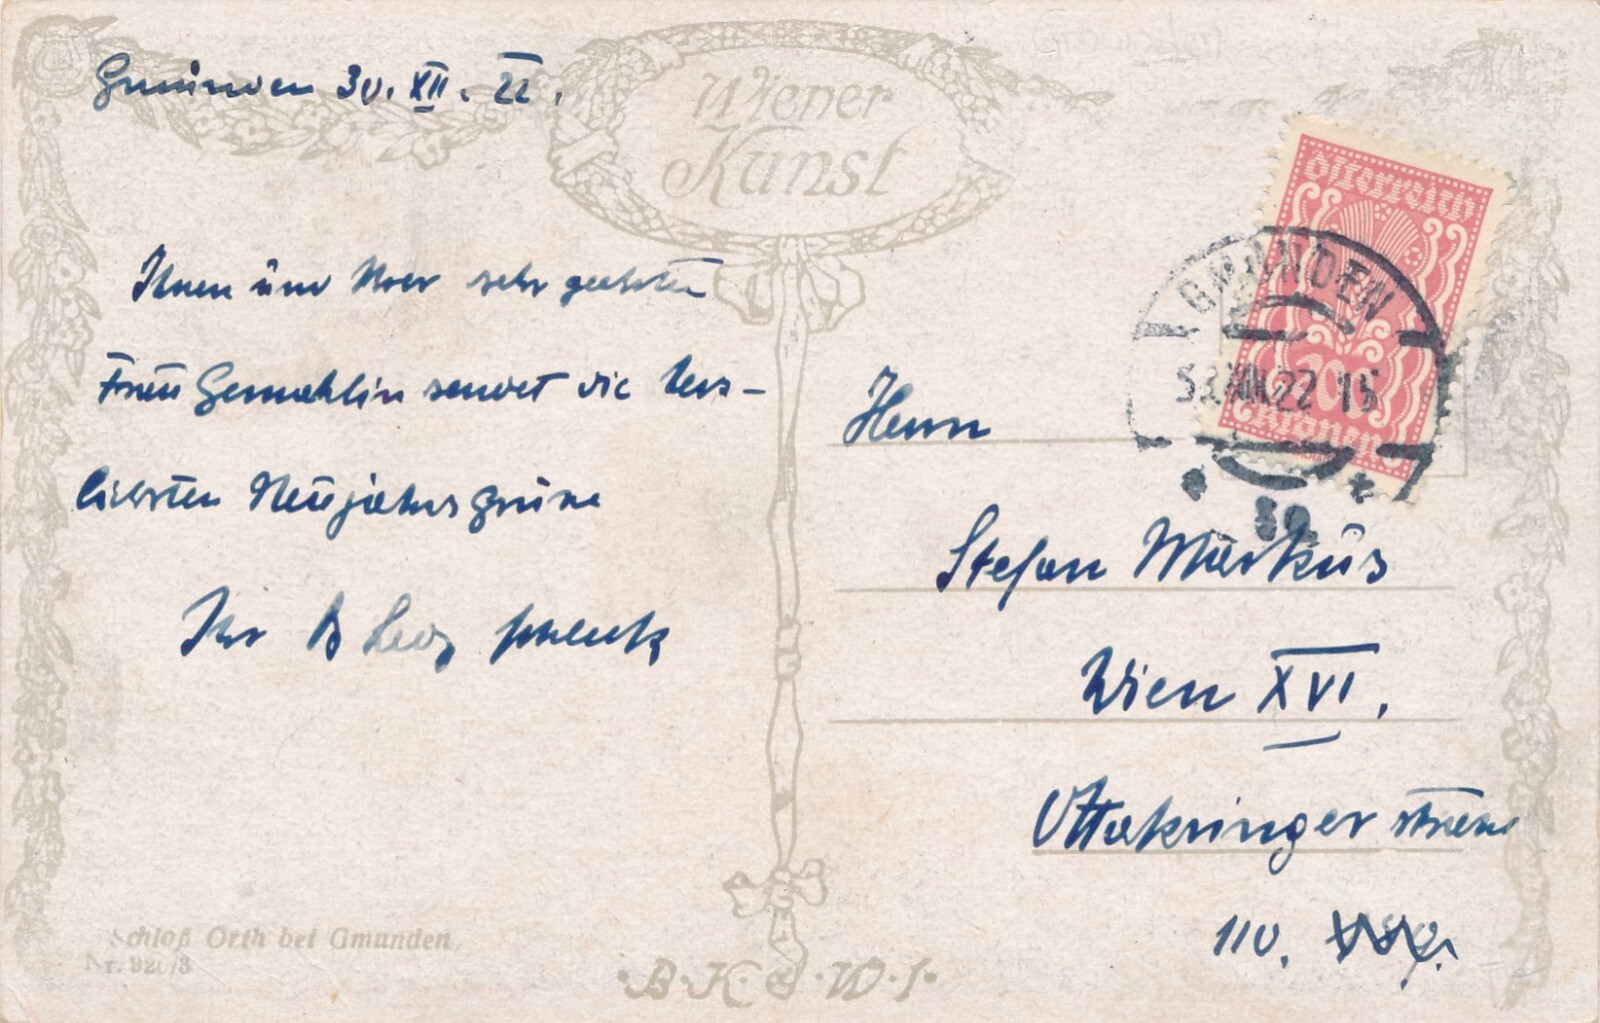 Gmunden 30. XII. 22.
Wiener
Kunst
Österreich
GMUNDEN
XII.22 15
Kronen
Ihnen und Ihrer sehr geehrten
Frau Gemahlin sendet die herz-
lichsten Neujahrsgrüsse
Ihr
Herrn
Stefan Markus
Wien XVI.
Ottakringer strasse
110.
Schloß Orth bei Gmunden
Nr. 920/3
B.K.W.I.